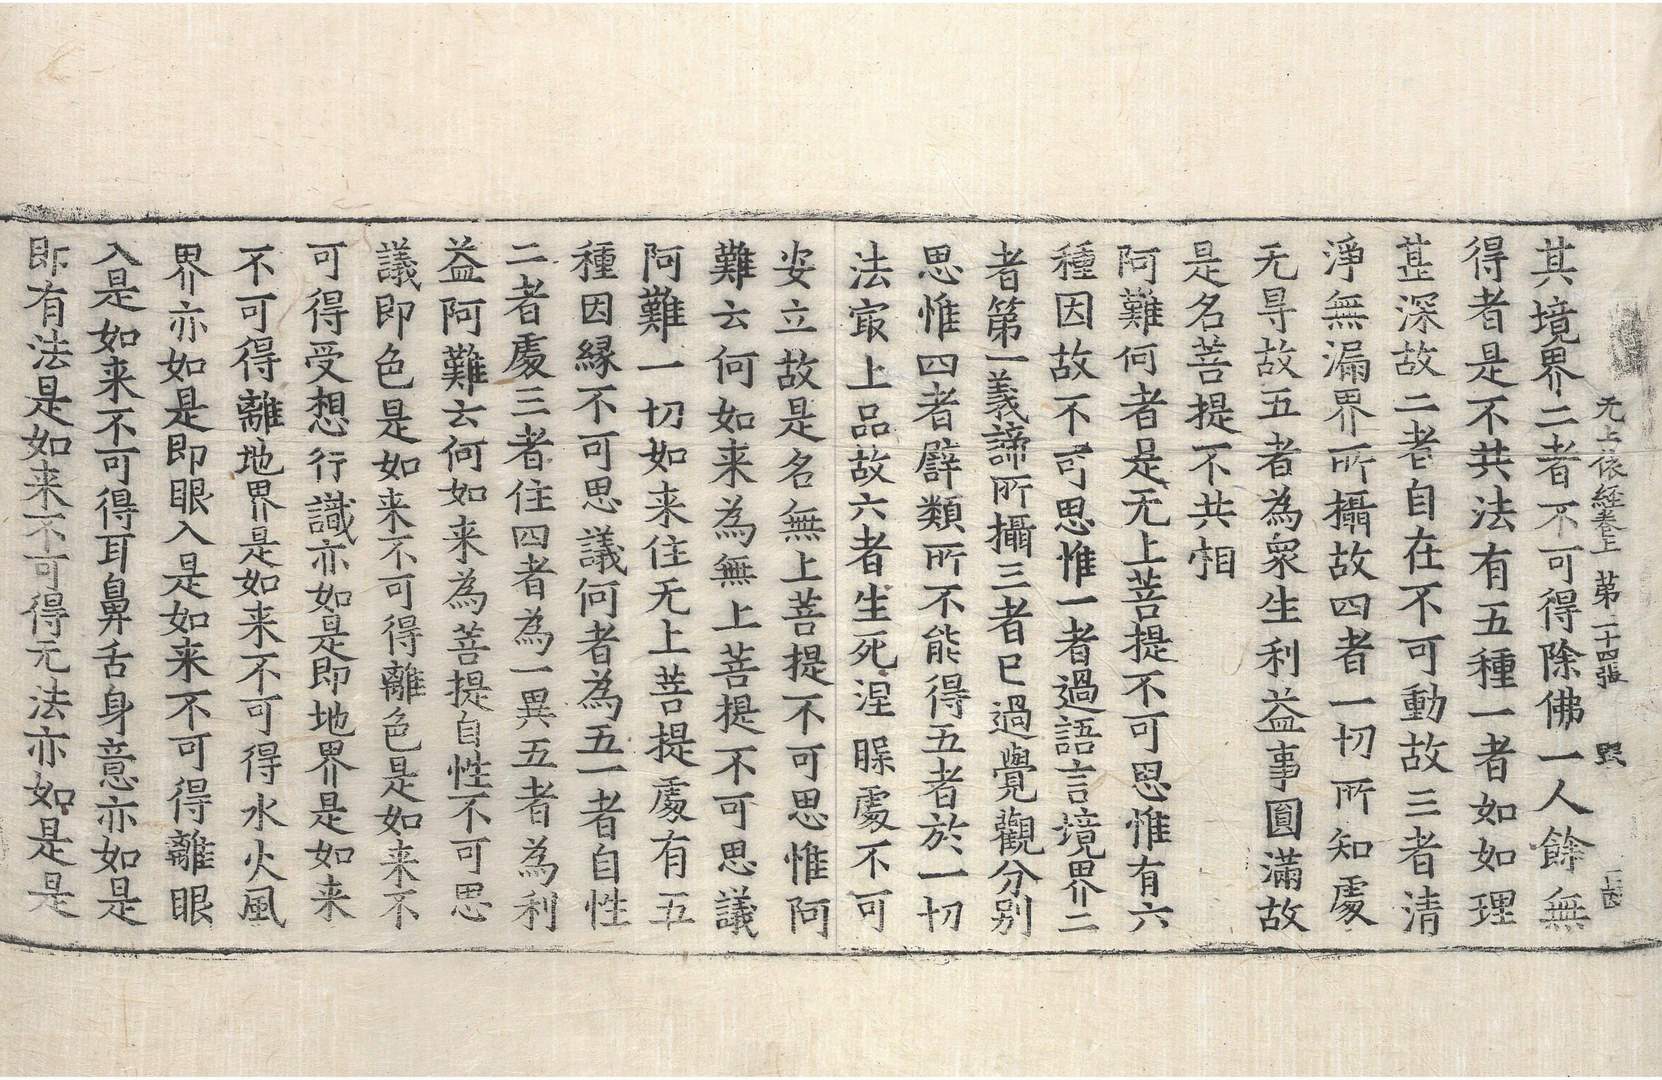 无上依經卷上 第二十四張
其境界二者不可得除佛一人餘無
得者是不共法有五種一者如如理
甚深故二者自在不可動故三者清
淨無漏界所攝故四者一切所知處
无㝵故五者為衆生利益事圓滿故
是名菩提不共相
阿難何者是无上菩提不可思惟有六
種因故不可思惟一者過語言境界二
者第一義諦所攝三者已過覺觀分别
思惟四者譬類所不能得五者於一切
法㝡上品故六者生死涅槃處不可
安立故是名無上菩提不可思惟阿
難云何如来為無上菩提不可思議
阿難一切如来住无上菩提處有五
種因縁不可思議何者為五一者自性
二者處三者住四者為一異五者為利
益阿難云何如来為菩提自性不可思
議即色是如来不可得離色是如来不
可得受想行識亦如是即地界是如来
不可得離地界是如来不可得水火風
界亦如是即眼入是如来不可得離眼
入是如来不可得耳鼻舌身意亦如是
即有法是如来不可得无法亦如是是